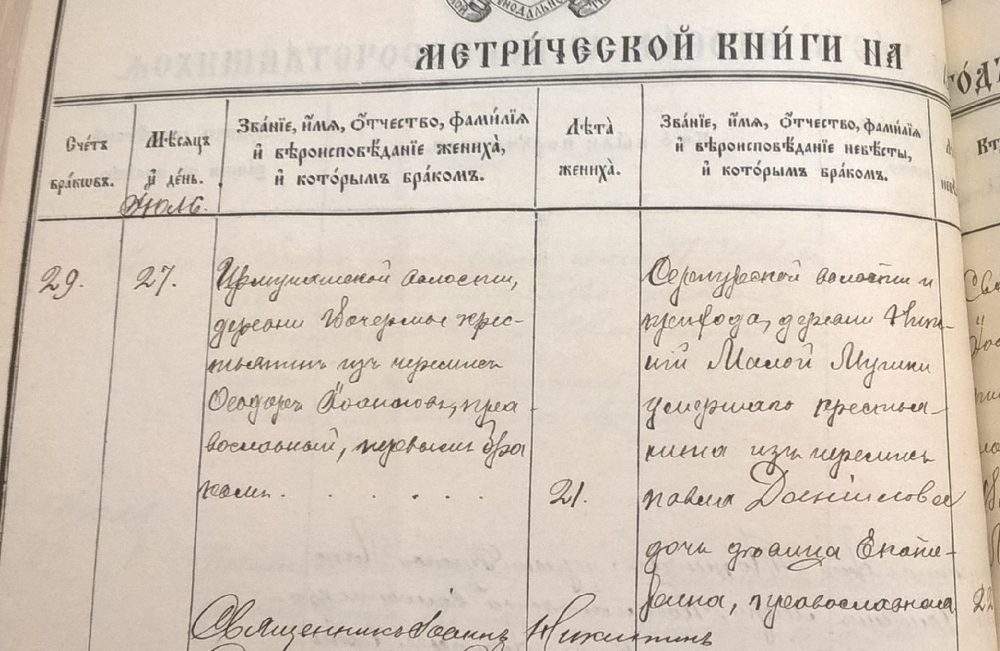 МЕТРИ́ЧЕСКОЙ КНИ́ГИ НА
ГО́ДЪ
Сче́тъ
бра́кѡвъ.
Мѣ́сяцъ
и҆ де́нь.
Іюль.
Зва́ніе, и҆́мя, ѻ҆́тчество, фами́лїя
и҆ вѣроисповѣ́даніе жениха̀,
и҆ кото́рымъ бра́комъ.
Лѣ́та
жениха̀.
Зва́ніе, и҆́мя, ѻ҆́тчество, фами́лїя
и҆ вѣроисповѣ́даніе невѣ́сты,
и҆ кото́рымъ бра́комъ.
29.
27.
волости,
деревни крес-
тьянинъ изъ черемисъ
Ѳеодоръ Іоанновъ, пра-
вославный, первымъ бра
комъ. . . . . .
21.
Сернурской волости и
прихода, деревни Ниж-
ней Малой Мушки
умершаго крестья-
нина изъ черемисъ
Павла Данилова
дочь девица Екате-
рина, православная
22
Священникъ Іоаннъ Никитинъ